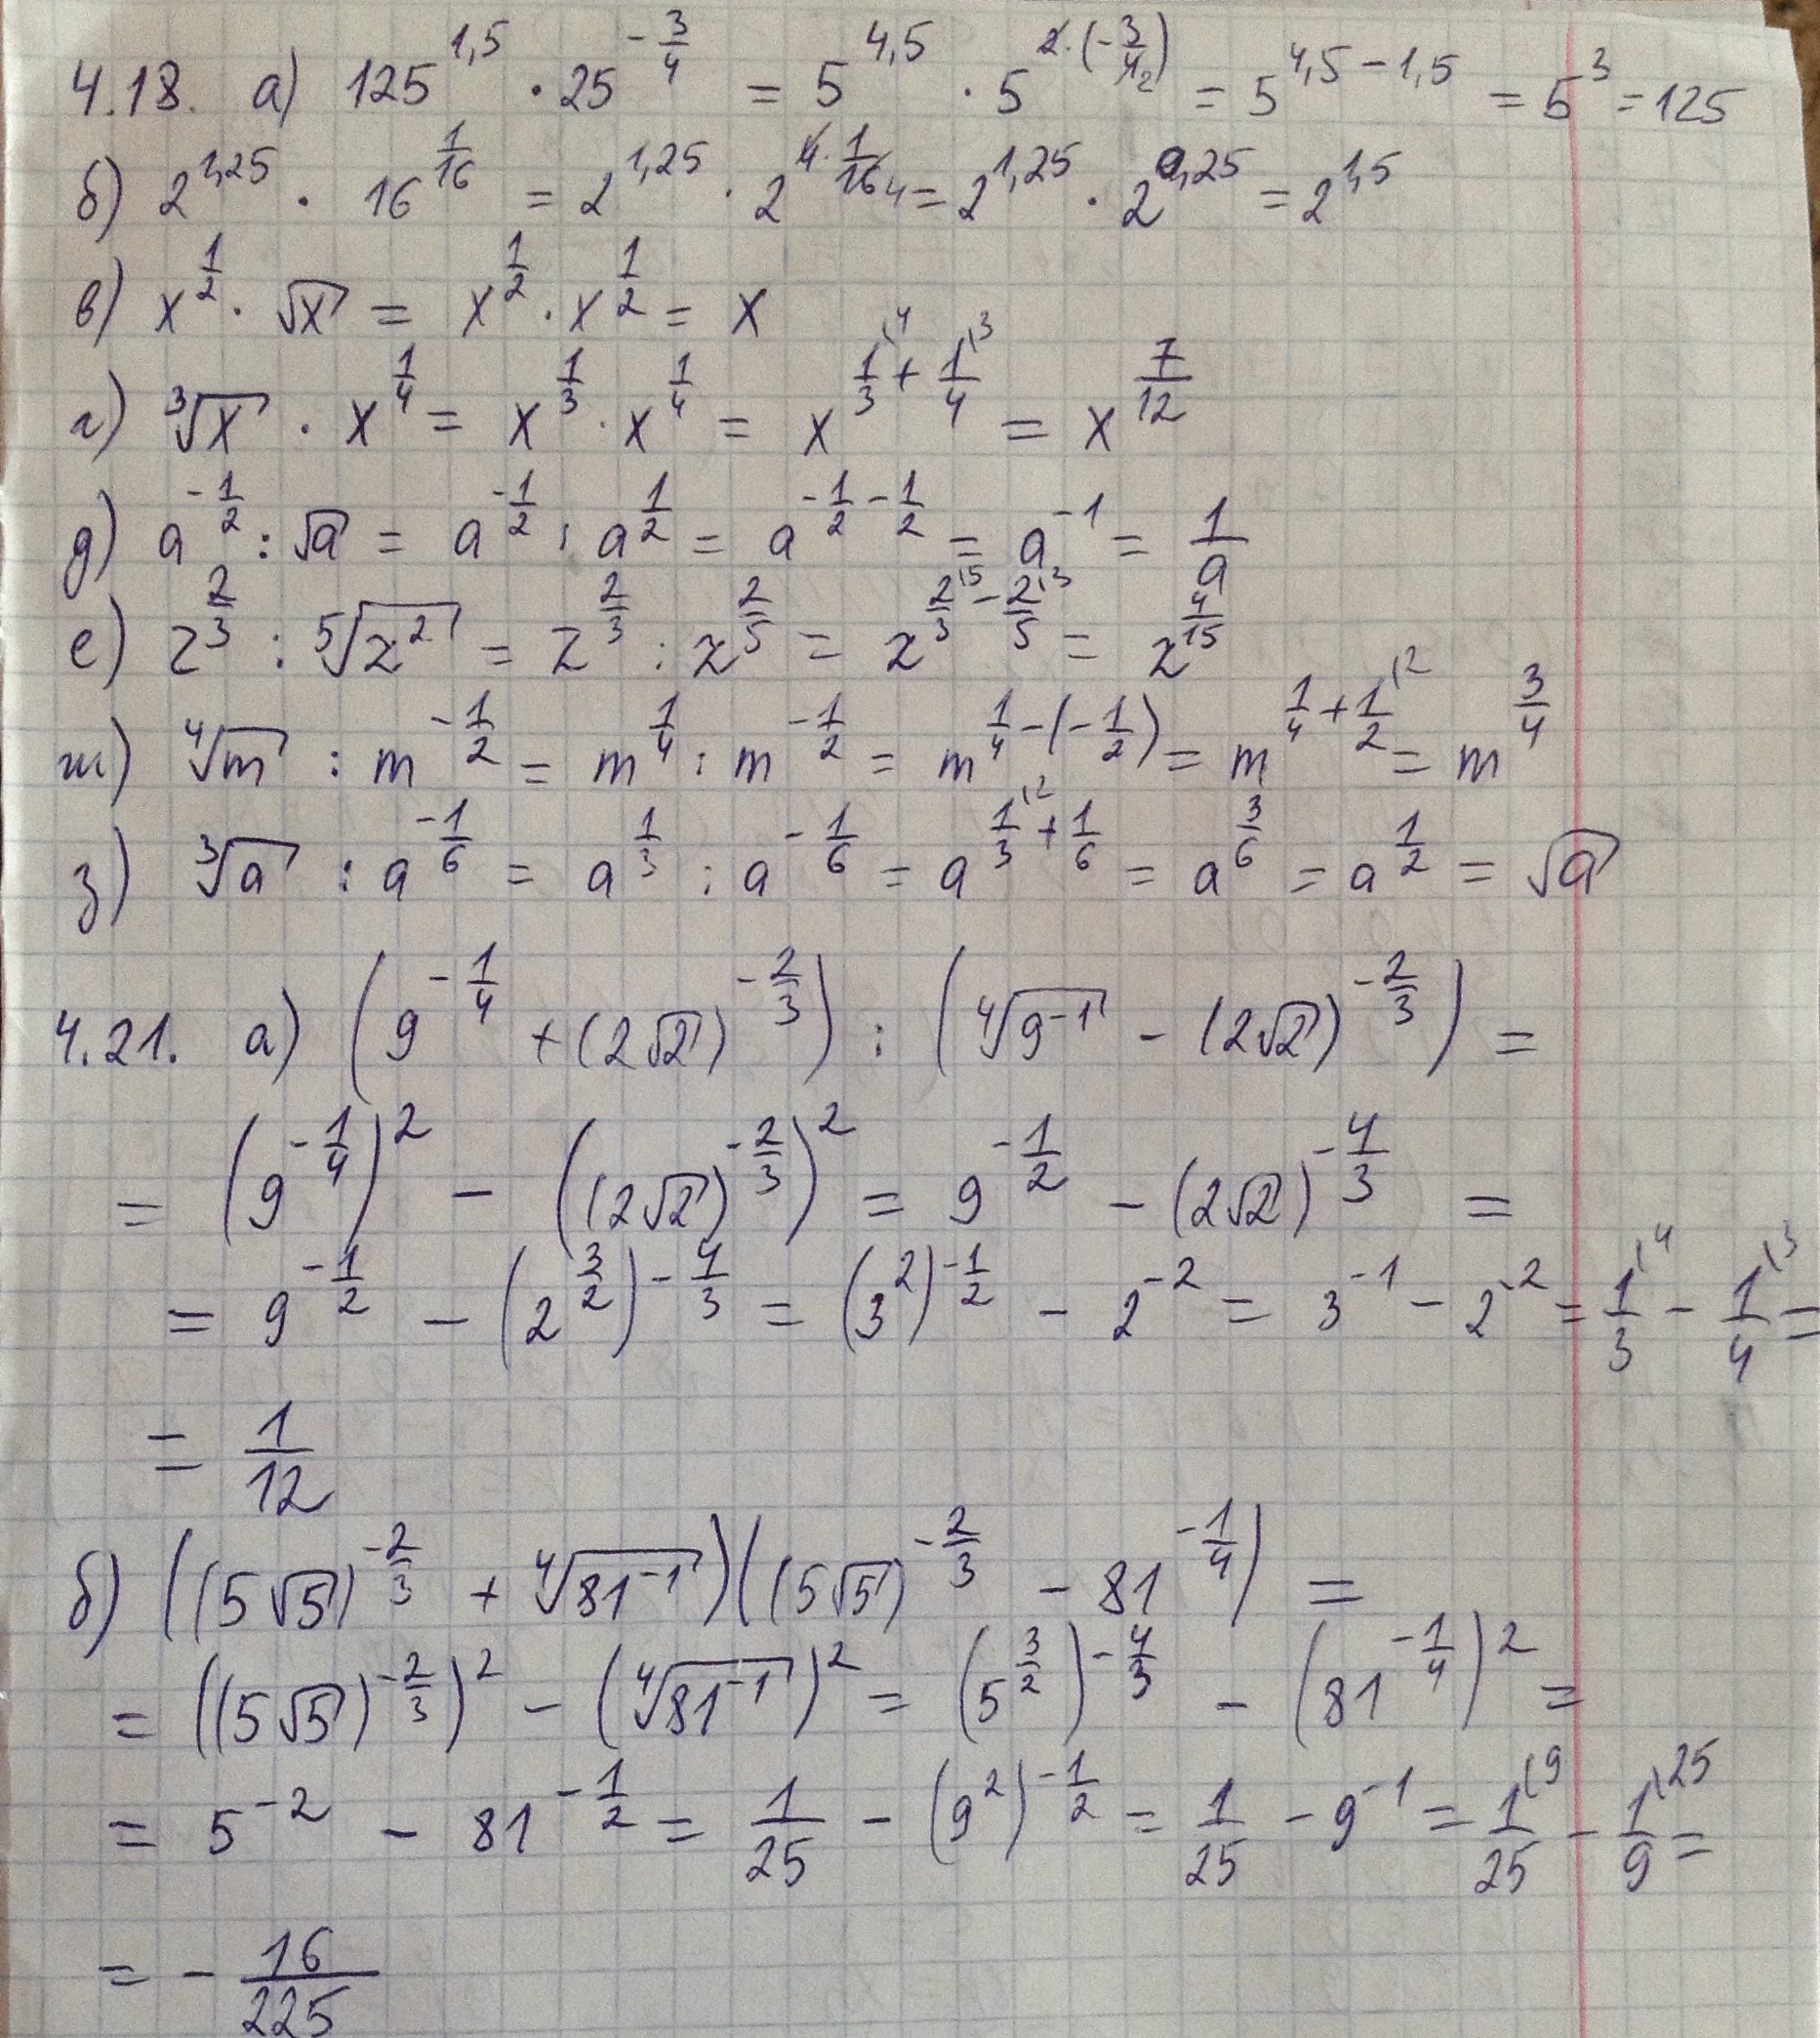 4.18. а) 125^{1,5} · 25^{-3/4} = 5^{4,5} · 5^{2·(-3/4_2)} = 5^{4,5-1,5} = 5^3 = 125
б) 2^{1,25} · 16^{1/16} = 2^{1,25} · 2^{4·1/16_4} = 2^{1,25} · 2^{0,25} = 2^{1,5}
в) x^{1/2} · √x = x^{1/2} · x^{1/2} = x
г) ∛x · x^{1/4} = x^{1/3} · x^{1/4} = x^{1/3^{\4} + 1/4^{\3}} = x^{7/12}
д) a^{-1/2} : √a = a^{-1/2} : a^{1/2} = a^{-1/2 - 1/2} = a^{-1} = 1/a
е) z^{2/3} : ⁵√(z^2) = z^{2/3} : z^{2/5} = z^{2/3^{\5} - 2/5^{\3}} = z^{4/15}
ж) ⁴√m : m^{-1/2} = m^{1/4} : m^{-1/2} = m^{1/4 - (-1/2)} = m^{1/4 + 1/2^{\2}} = m^{3/4}
з) ∛a : a^{-1/6} = a^{1/3} : a^{-1/6} = a^{1/3^{\2} + 1/6} = a^{3/6} = a^{1/2} = √a
4.21. а) (9^{-1/4} + (2√2)^{-2/3}) : (⁴√(9^{-1}) - (2√2)^{-2/3}) =
= (9^{-1/4})^2 - ((2√2)^{-2/3})^2 = 9^{-1/2} - (2√2)^{-4/3} =
= 9^{-1/2} - (2^{3/2})^{-4/3} = (3^2)^{-1/2} - 2^{-2} = 3^{-1} - 2^{-2} = 1/3^{\4} - 1/4^{\3} =
= 1/12
б) ((5√5)^{-2/3} + ⁴√(81^{-1}))((5√5)^{-2/3} - 81^{-1/4}) =
= ((5√5)^{-2/3})^2 - (⁴√(81^{-1}))^2 = (5^{3/2})^{-4/3} - (81^{-1/4})^2 =
= 5^{-2} - 81^{-1/2} = 1/25 - (9^2)^{-1/2} = 1/25 - 9^{-1} = 1/25^{\9} - 1/9^{\25} =
= - 16/225